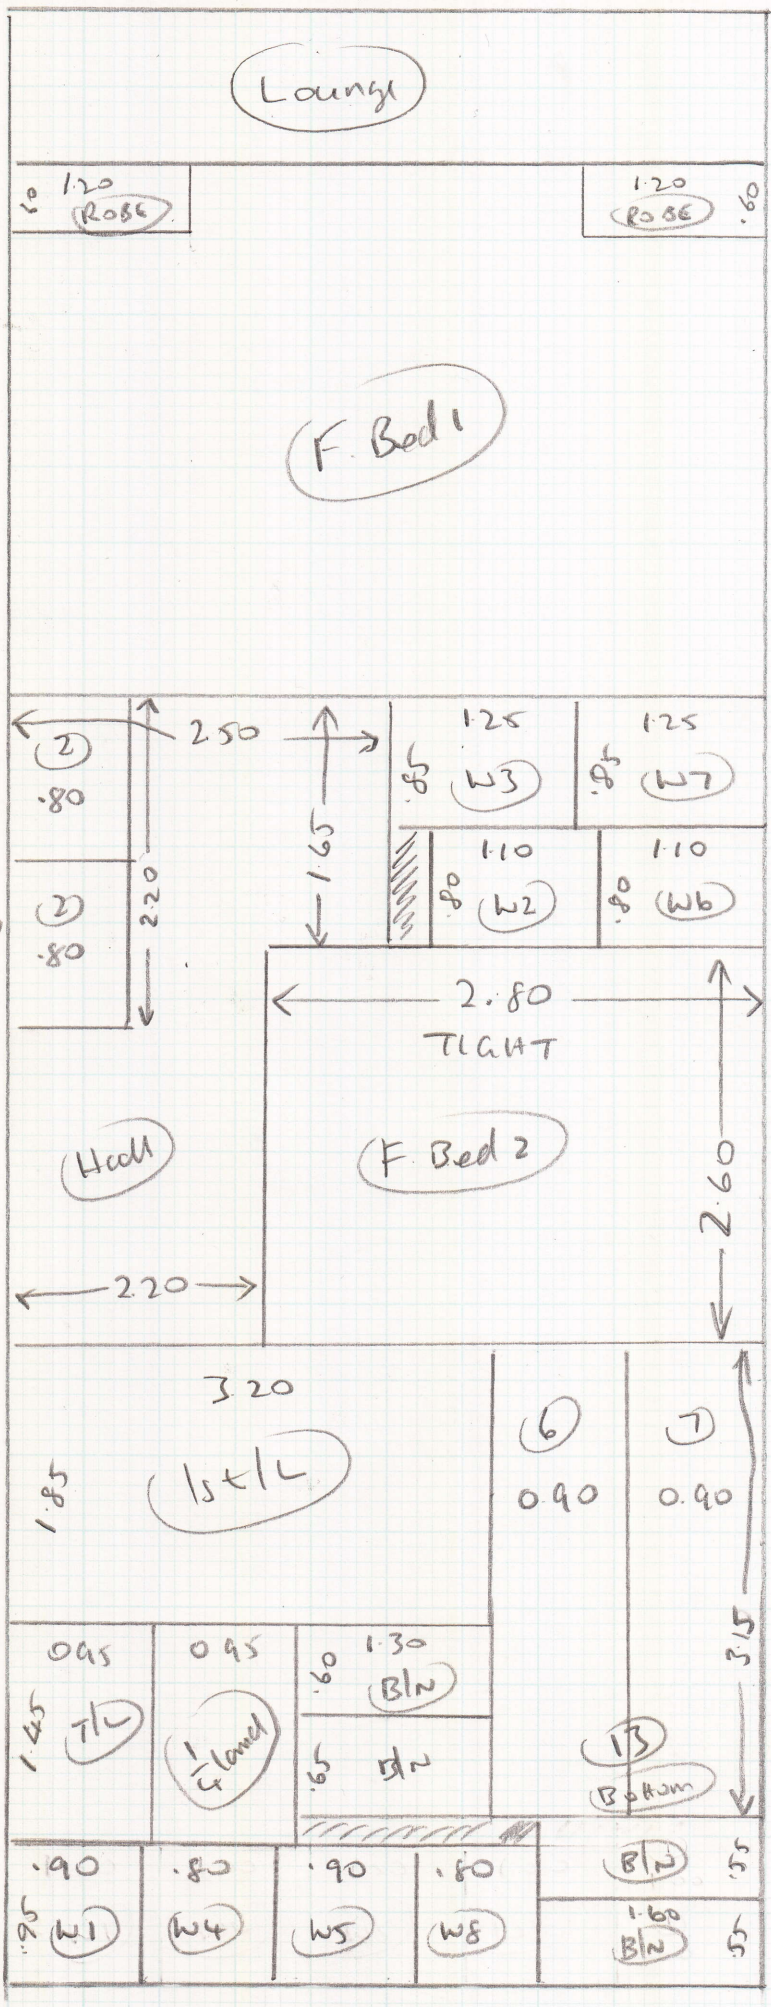 Lounge
1.20
.60
ROBE
1.20
ROBE
.60
F. Bed 1
2.50
2
.80
2.20
1.65
1.25
.85
W3
1.25
.85
W7
2
.80
1.10
.80
W2
1.10
.80
W6
2.80
TIGHT
Hall
F Bed 2
2.60
2.20
3.20
1st/L
1.85
6
0.90
7
0.90
3.15
0.95
T/L
1.45
0.95
1/4 land
1.30
.60
B/N
.65
B/N
13
Bottom
.90
.95
W1
.80
W4
.90
W5
.80
W8
B/N
.55
1.60
B/N
.55